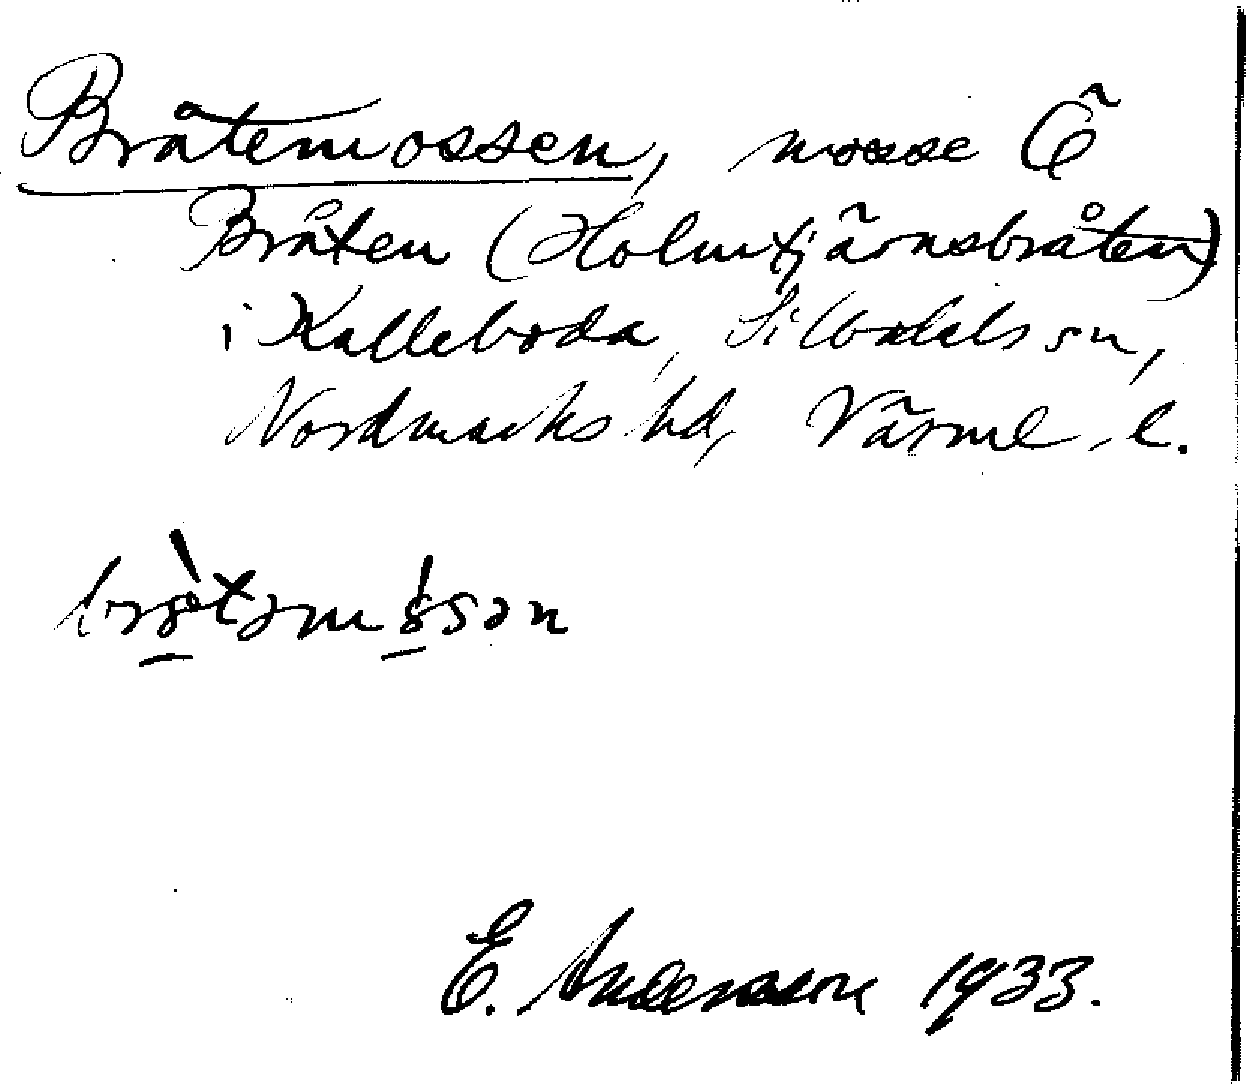 Bråtemossen, mosse Ö
Bråten (Holmtjärnsbråten)
i Kalleboda, Silbodals sn,
Nordmarks hd, Värml. l.
brò̱təmò̱sən
E. Andersson 1933.